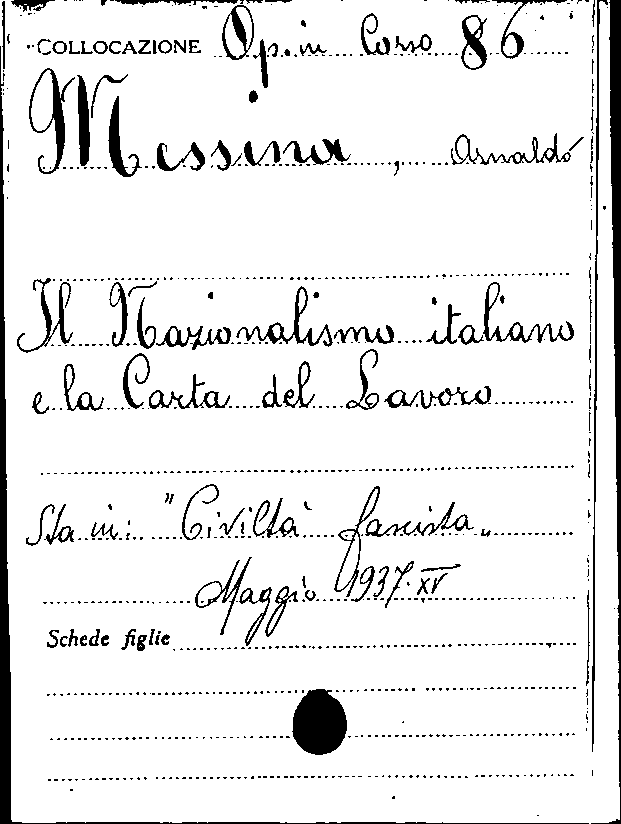 COLLOCAZIONE Op. in Corso 86
Messina, Arnaldo
Il Nazionalismo italiano
e la Carta del Lavoro
Sta in: "Civiltà fascista„
Maggio 1937·XV
Schede figlie